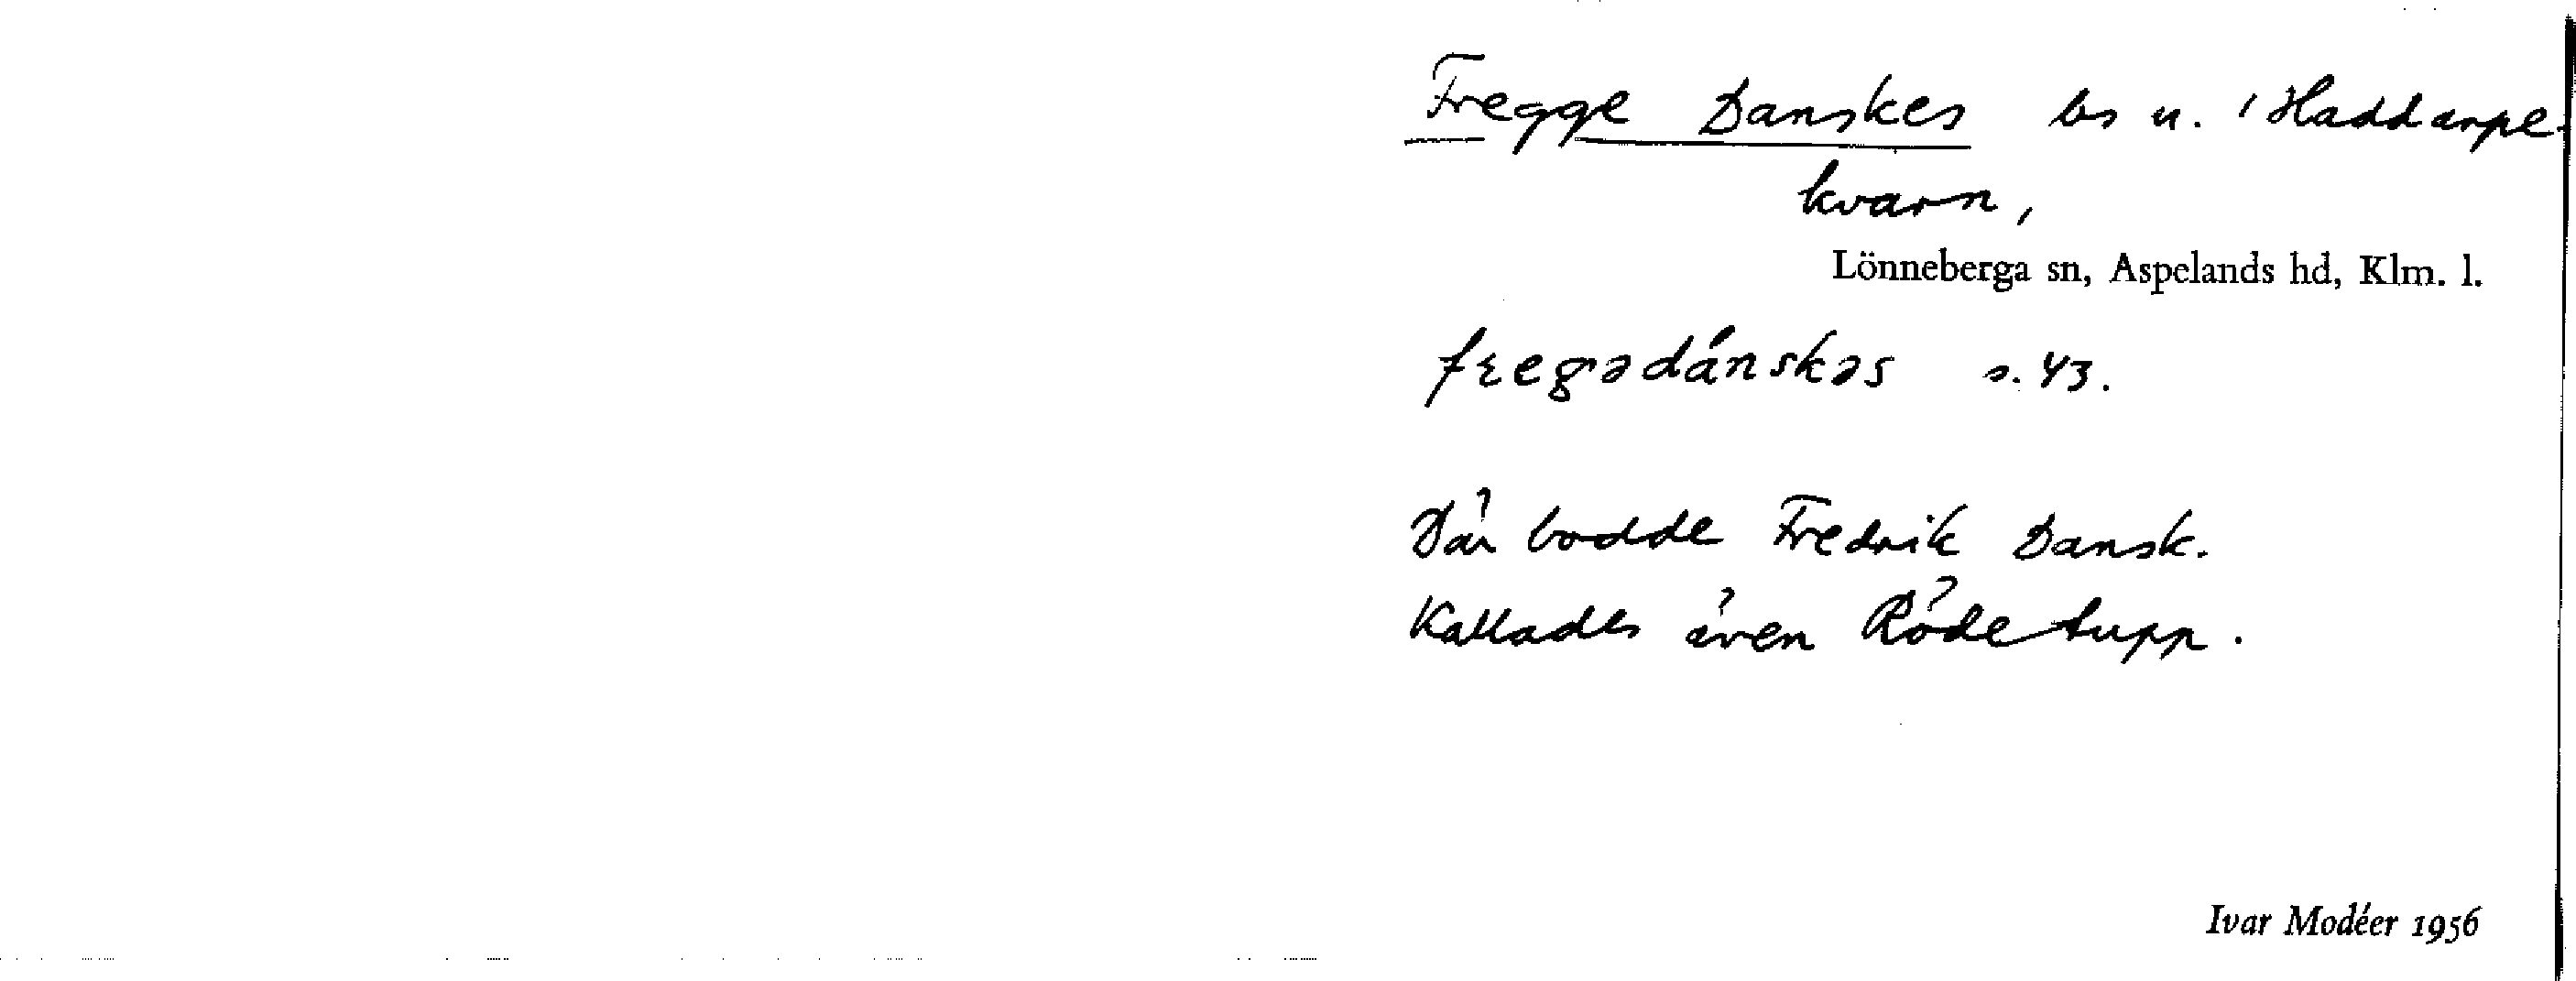 Fregge Danskes bs u. 'Haddarpe-
kvarn,
Lönneberga sn, Aspelands hd, Klm. l.
fregədánskəs s. 43.
Där bodde Fredrik Dansk.
Kallades även Röde tupp.
Ivar Modéer 1956